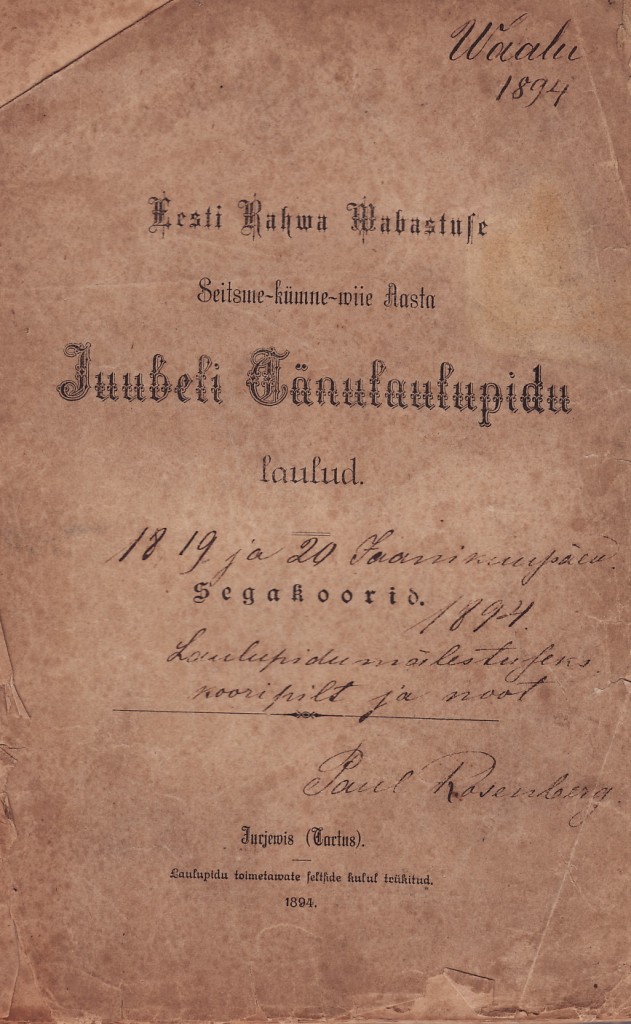 Waalu
1894
Eesti Rahwa Wabastuse
Seitsme-kümne-wiie Aasta
Juubeli Tänulaulupidu
laulud.
18 19 ja 20 Jaanikuupäew
Segakoorid.
1894.
Laulupidu mälestuseks
kooripilt ja noot
Paul Rosenberg
Jurjewis (Tartus).
Laulupidu toimetawate seltside kulul trükitud.
1894.